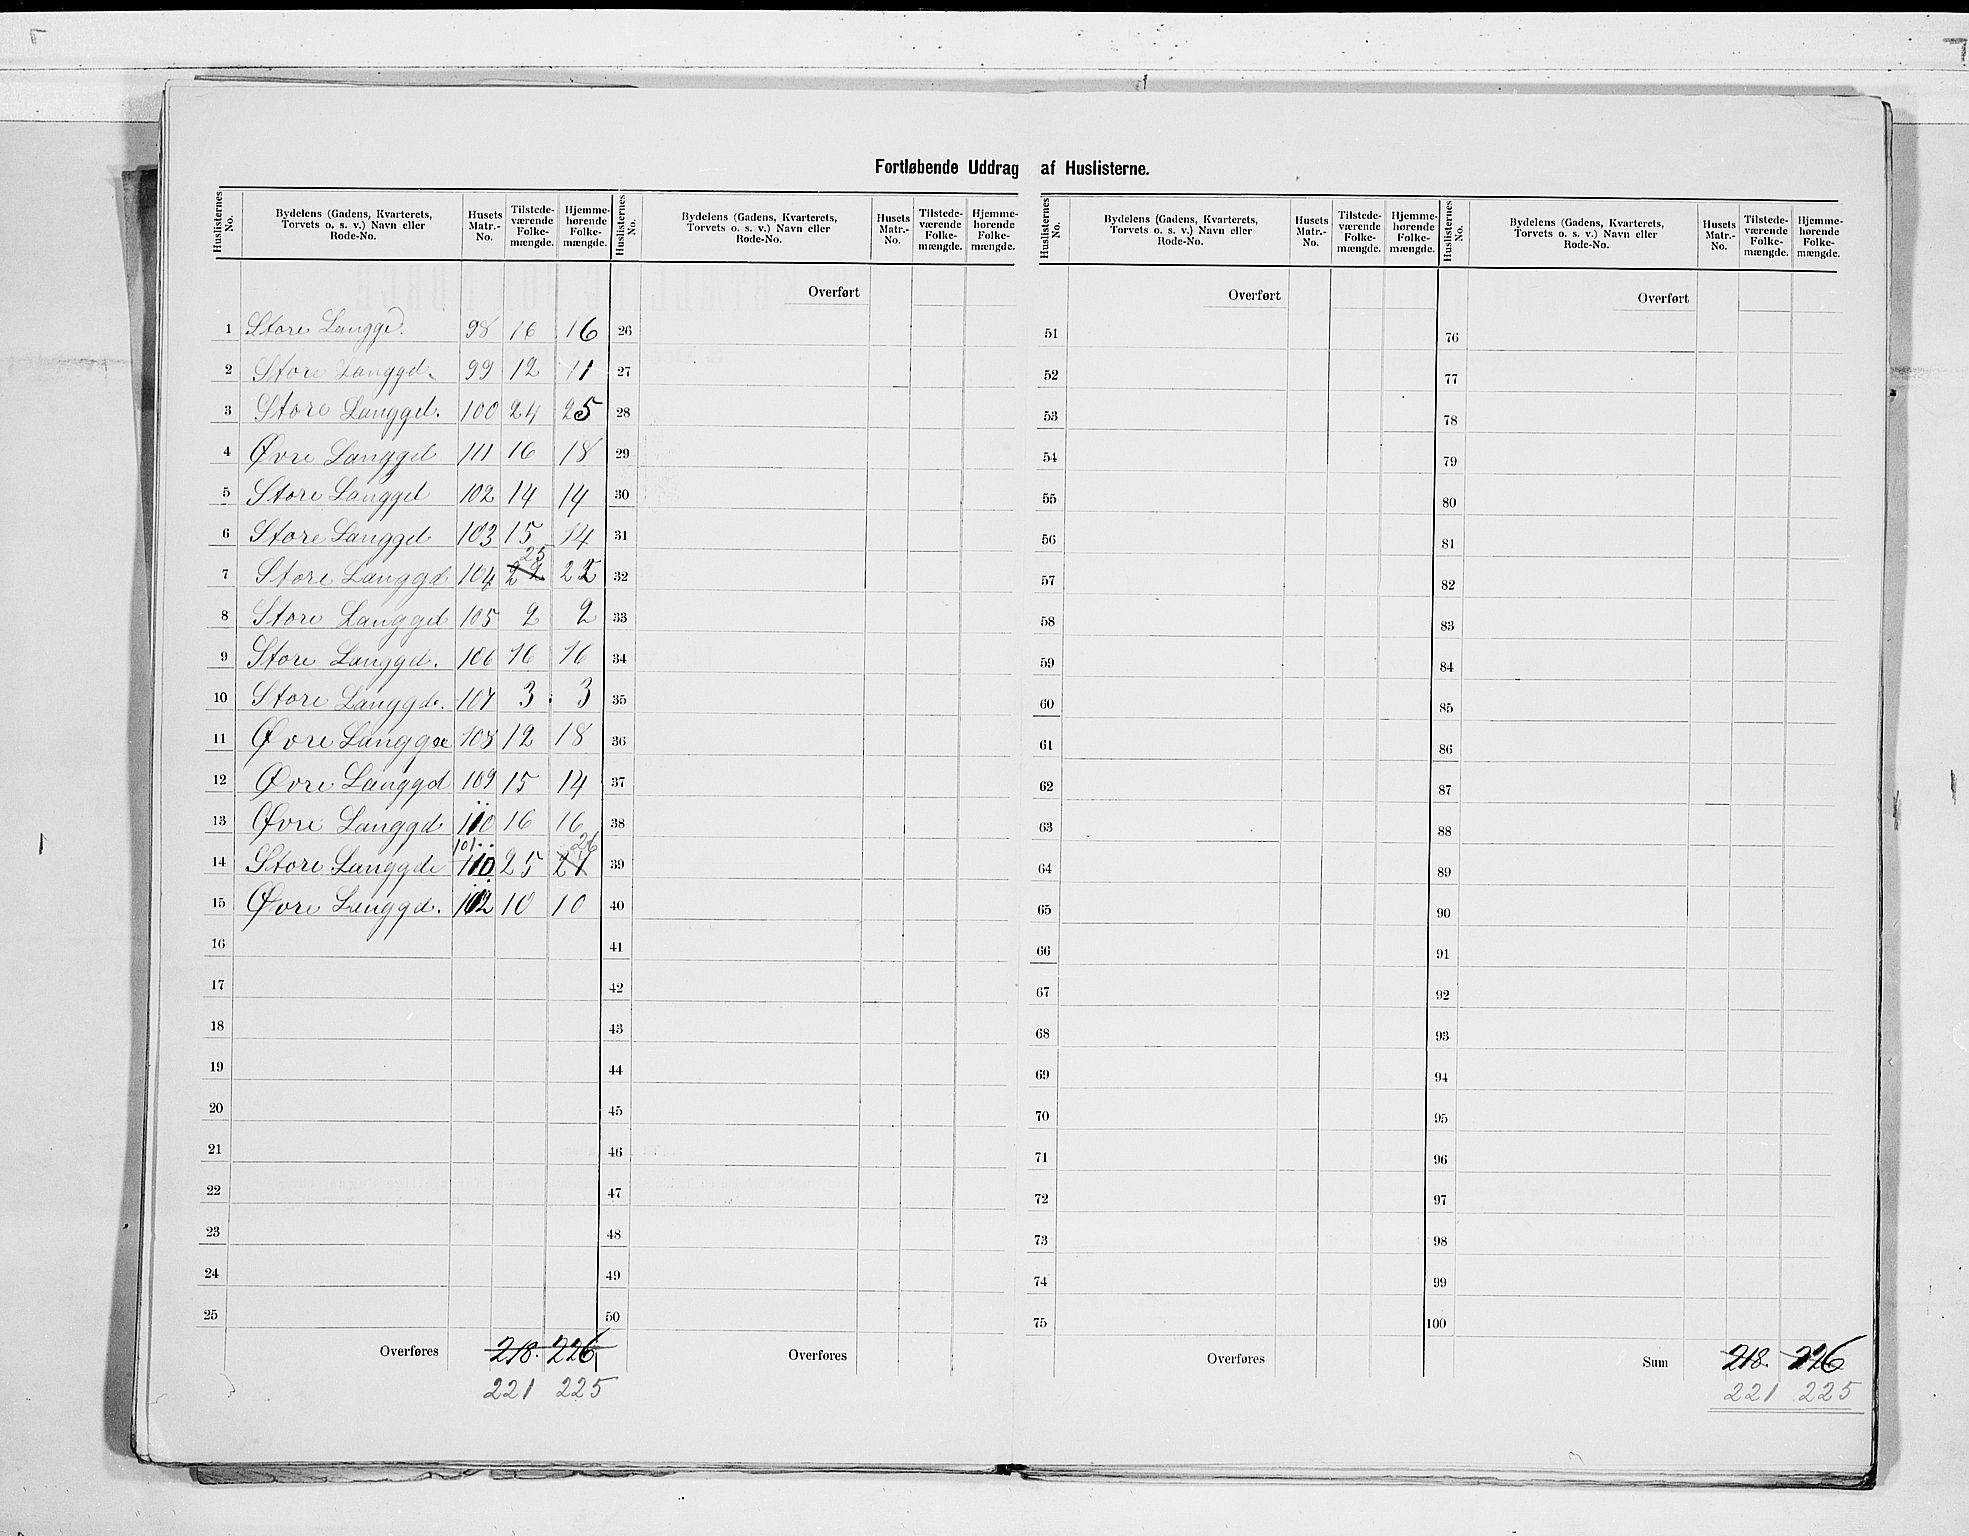 Fortløbende Uddrag af Huslisterne.
Huslisternes No. | Bydelens (Gadens, Kvarterets, Torvets o. s. v.) Navn eller Rode-No. | Husets Matr.-No. | Tilstedeværende Folkemængde. | Hjemmehørende Folkemængde. | Huslisternes No. | Bydelens (Gadens, Kvarterets, Torvets o. s. v.) Navn eller Rode-No. | Husets Matr.-No. | Tilstedeværende Folkemængde. | Hjemmehørende Folkemængde. | Huslisternes No. | Bydelens (Gadens, Kvarterets, Torvets o. s. v.) Navn eller Rode-No. | Husets Matr.-No. | Tilstedeværende Folkemængde. | Hjemmehørende Folkemængde. | Huslisternes No. | Bydelens (Gadens, Kvarterets, Torvets o. s. v.) Navn eller Rode-No. | Husets Matr.-No. | Tilstedeværende Folkemængde. | Hjemmehørende Folkemængde.
Overført Overført Overført
1 Store Langgd. 98 16 16 26 51 76
2 Store Langgd. 99 12 11 27 52 77
3 Store Langgd. 100 24 25 28 53 78
4 Øvre Langgd 111 16 18 29 54 79
5 Store Langgd 102 14 14 30 55 80
6 Store Langgd 103 15 14 31 56 81
25
7 Store Langgd 104 22 22 32 57 82
8 Store Langgd 105 2 2 33 58 83
9 Store Langgd. 106 16 16 34 59 84
10 Store Langgde. 107 3 3 35 60 85
11 Øvre Langgde 108 12 18 36 61 86
12 Øvre Langgd 109 15 14 37 62 87
13 Øvre Langgd 110 16 16 38 63 88
101 26
14 Store Langgde 110 25 27 39 64 89
15 Øvre Langgd. 112 10 10 40 65 90
16 41 66 91
17 42 67 92
18 43 68 93
19 44 69 94
20 45 70 95
21 46 71 96
22 47 72 97
23 48 73 98
24 49 74 99
25 50 75 100
Overføres 218. 226 Overføres Overføres Sum 218. 226
221 225 221 225